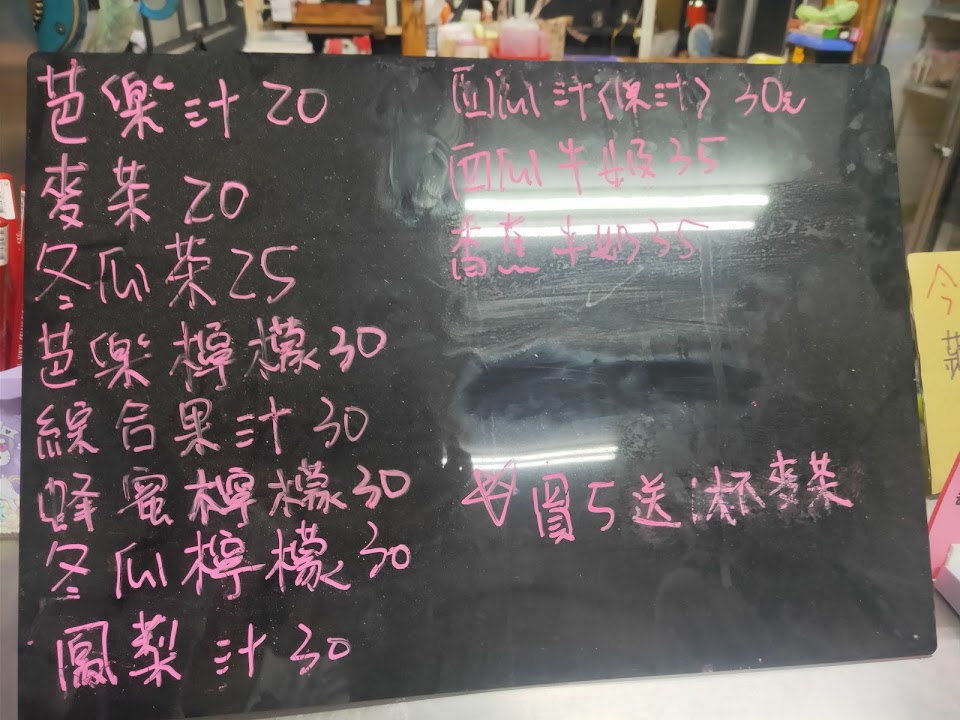 芭樂汁 20
麥茶 20
冬瓜茶 25
芭樂檸檬 30
綜合果汁 30
蜂蜜檸檬 30
冬瓜檸檬 30
鳳梨汁 30
西瓜汁(原汁) 30元
西瓜牛奶 35
香蕉牛奶 35
☆買5送1杯麥茶
今